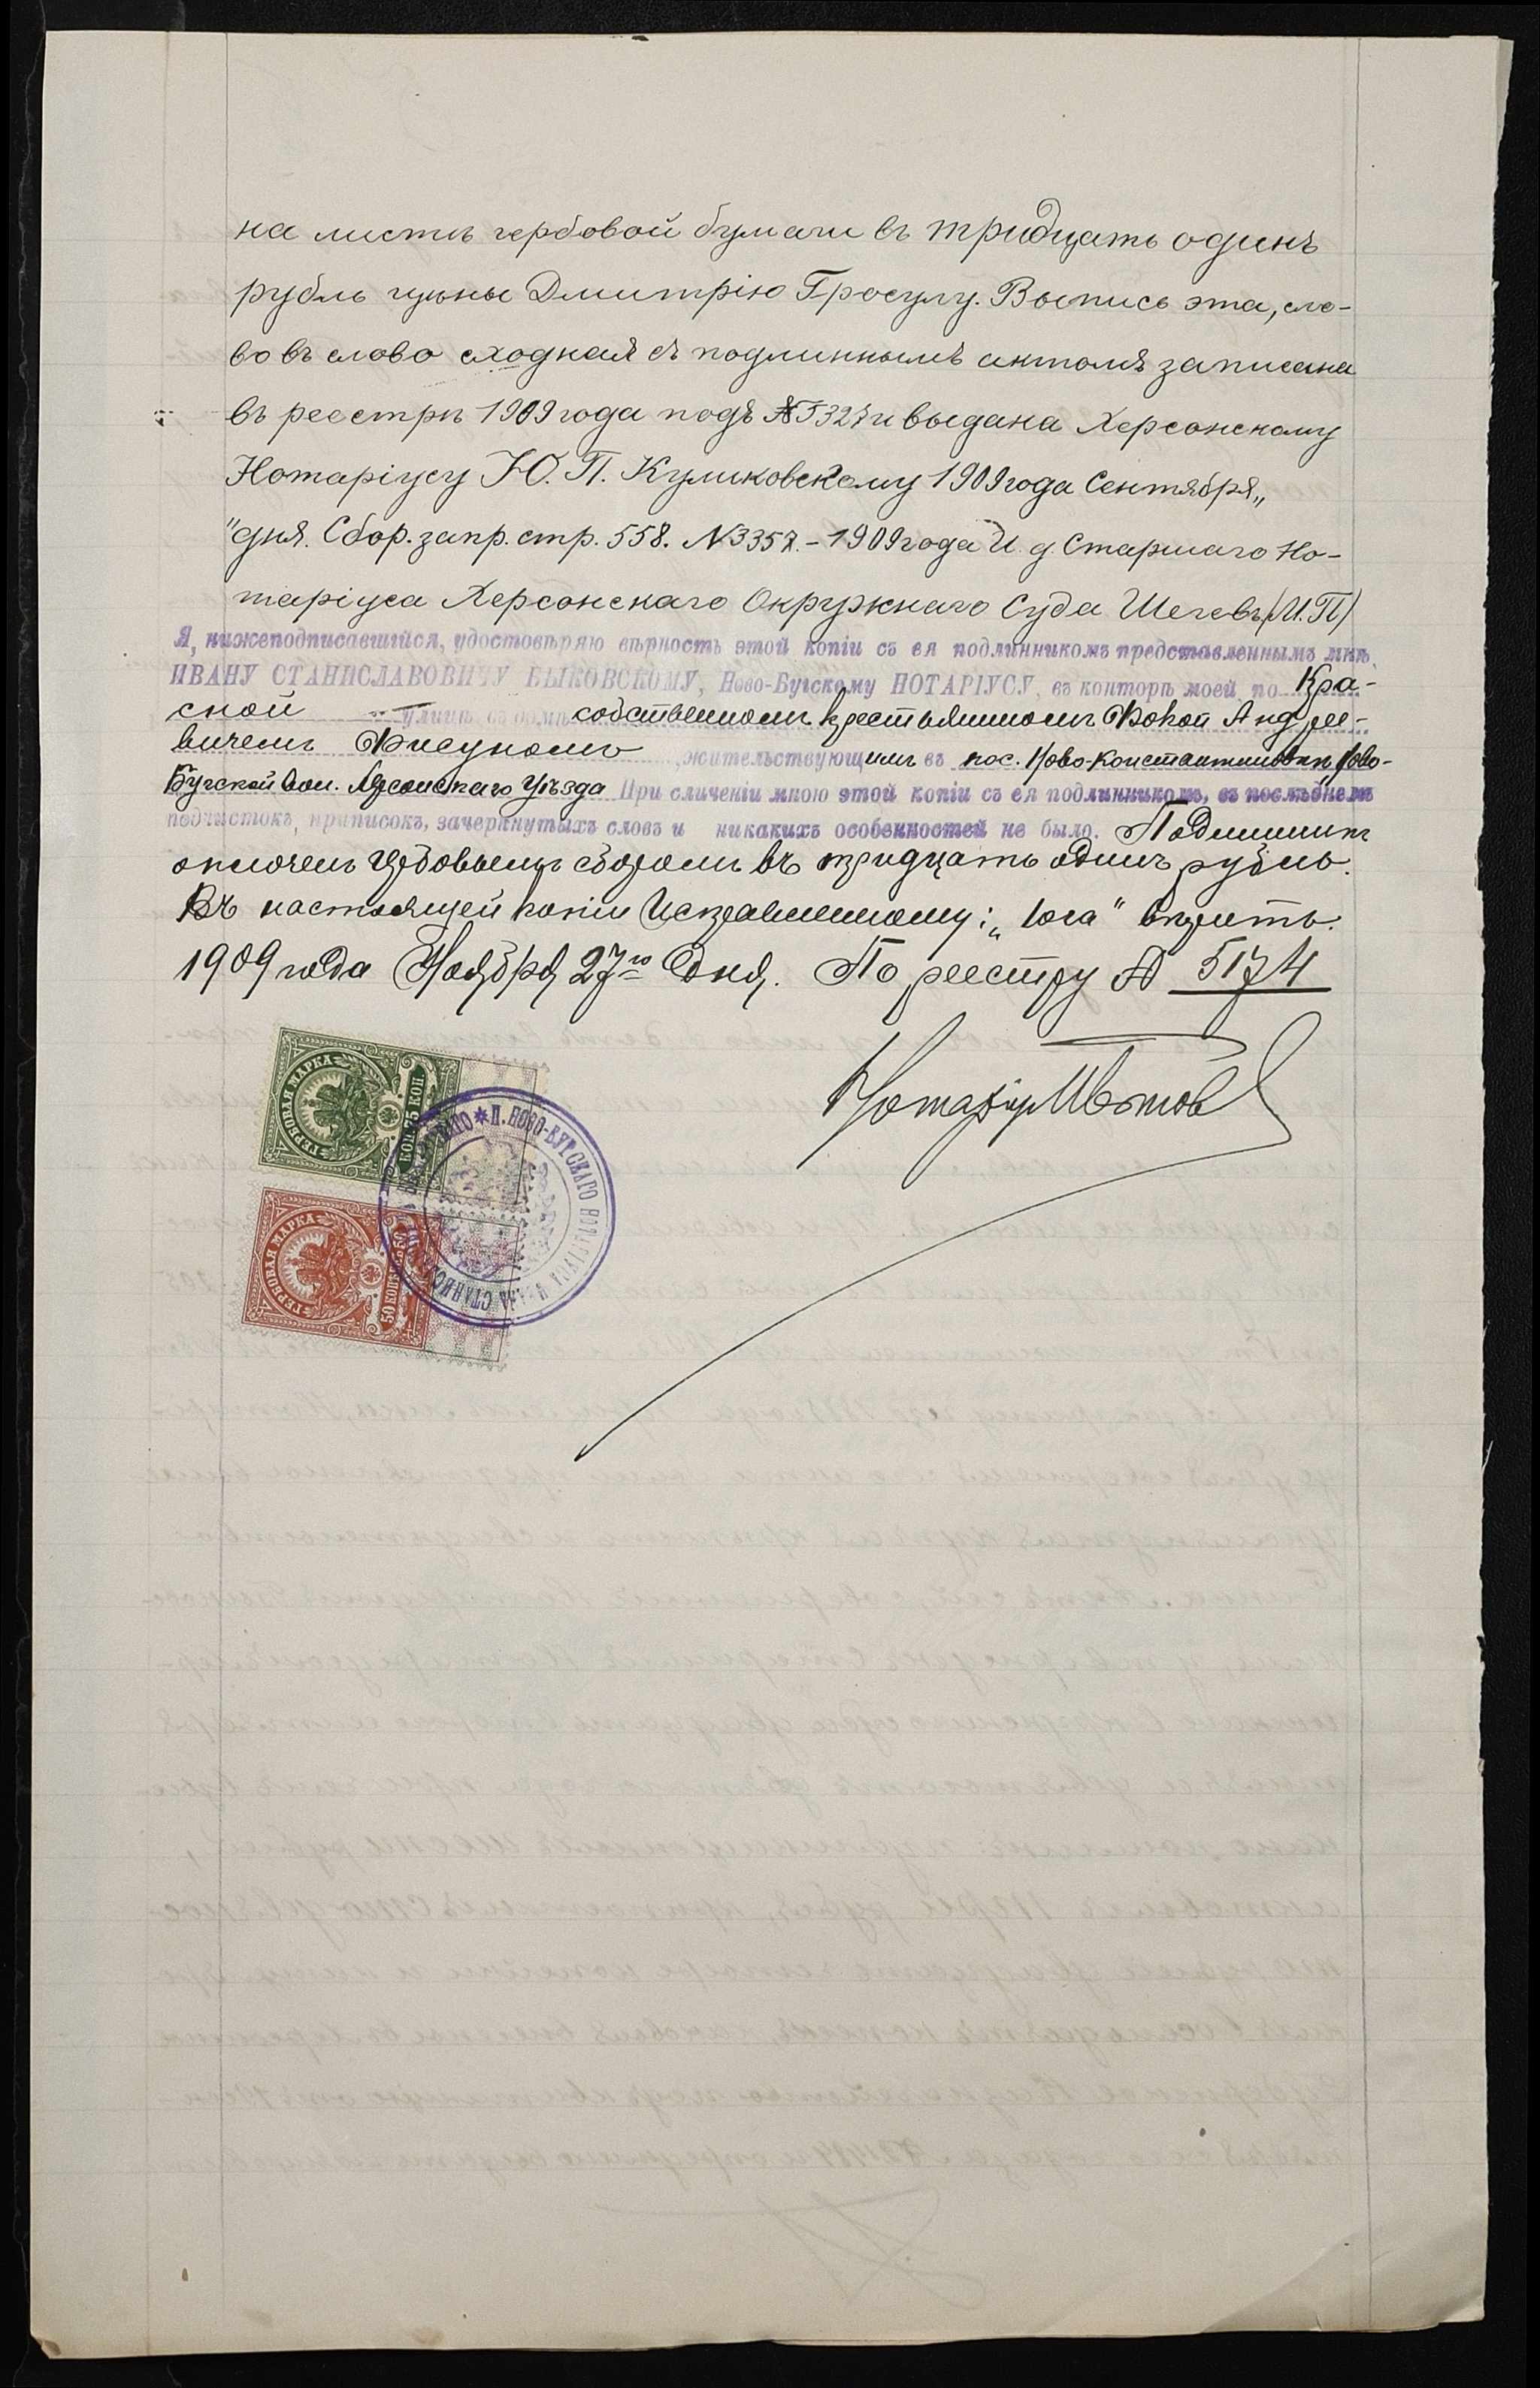 на листѣ гербовой бумаги въ тридцать одинъ
рубль цѣны Дмитрію Гросулу. Выпись эта, сло-
во въ слово сходная съ подлиннымъ актомъ записана
въ реестрѣ 1909 года подъ № и выдана Херсонскому
Нотаріусу Ю. П. Куликовскому 1909 года Сентября „
" дня. Сбор. запр. стр. 558. № 3357. – 1909 года И. д. Старшаго Но-
таріуса Херсонскаго Окружнаго Суда (М.П.)
Я, нижеподписавшійся, удостовѣряю вѣрность этой копіи съ ея подлинникомъ представленнымъ мнѣ,
ИВАНУ СТАНИСЛАВОВИЧУ БЫКОВСКОМУ, Ново-Бугскому НОТАРІУСУ, въ конторѣ моей по Кра-
сной улицѣ въ домѣ собственномъ крестьяниномъ Фокой Андрее-
вичемъ Фисуномъ жительствующимъ въ пос. Ново-Константиновкѣ, Ново-
Бугской вол. Херсонскаго уѣзда При сличеніи мною этой копіи съ ея подлинникомъ, въ послѣднемъ
подчистокъ, приписокъ, зачеркнутыхъ словъ и никакихъ особенностей не было. Подлинникъ
оплоченъ гербовымъ сборомъ въ тридцать одинъ рубль.
Въ настоящей копіи Исправленному: „юга" вѣрить.
1909 года Ноября 27го дня. По реестру № 5174
Нотаріусъ
ГЕРБОВАЯ МАРКА
75 КОП
ГЕРБОВАЯ МАРКА
50 КОП 50
П. НОВО-БУГСКАГО НОТАРІУСА ИВАНА СТАНИСЛАВОВИЧА БЫКОВСКАГО